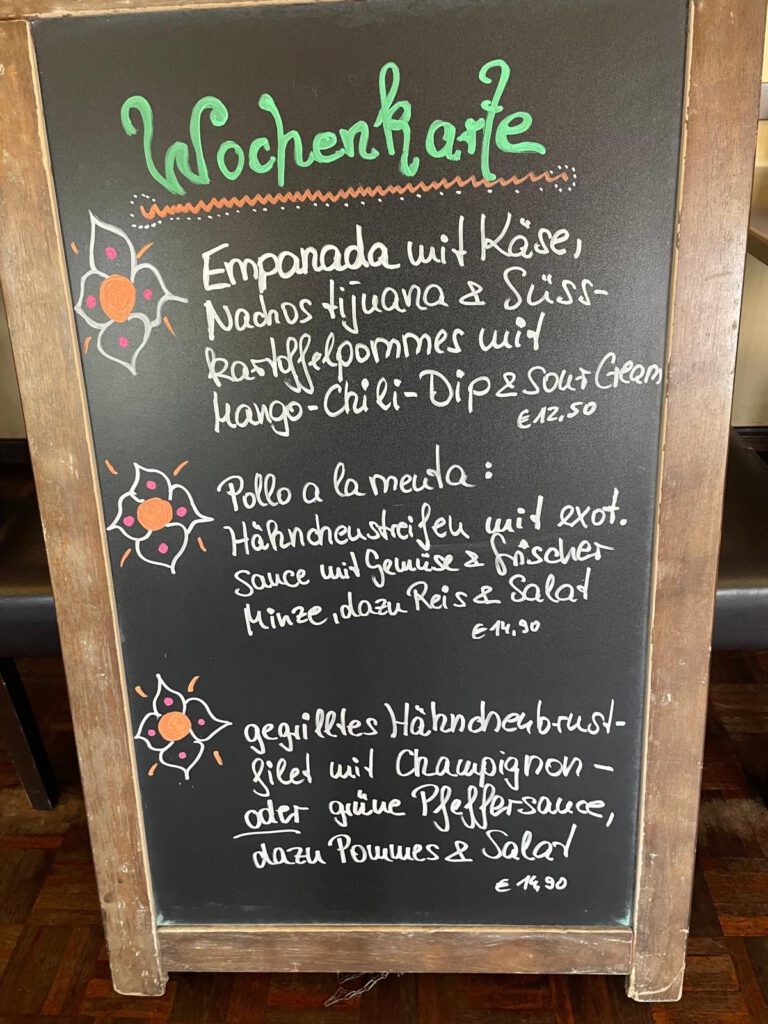 Wochenkarte
Empanada mit Käse,
Nachos tijuana & Süss-
kartoffelpommes mit
Mango-Chili-Dip & Sour Cream
€ 12,50
Pollo a la menta:
Hähnchenstreifen mit exot.
Sauce mit Gemüse & frischer
Minze, dazu Reis & Salat
€ 14,90
gegrilltes Hähnchenbrust-
filet mit Champignon-
oder grüne Pfeffersauce,
dazu Pommes & Salat
€ 14,90